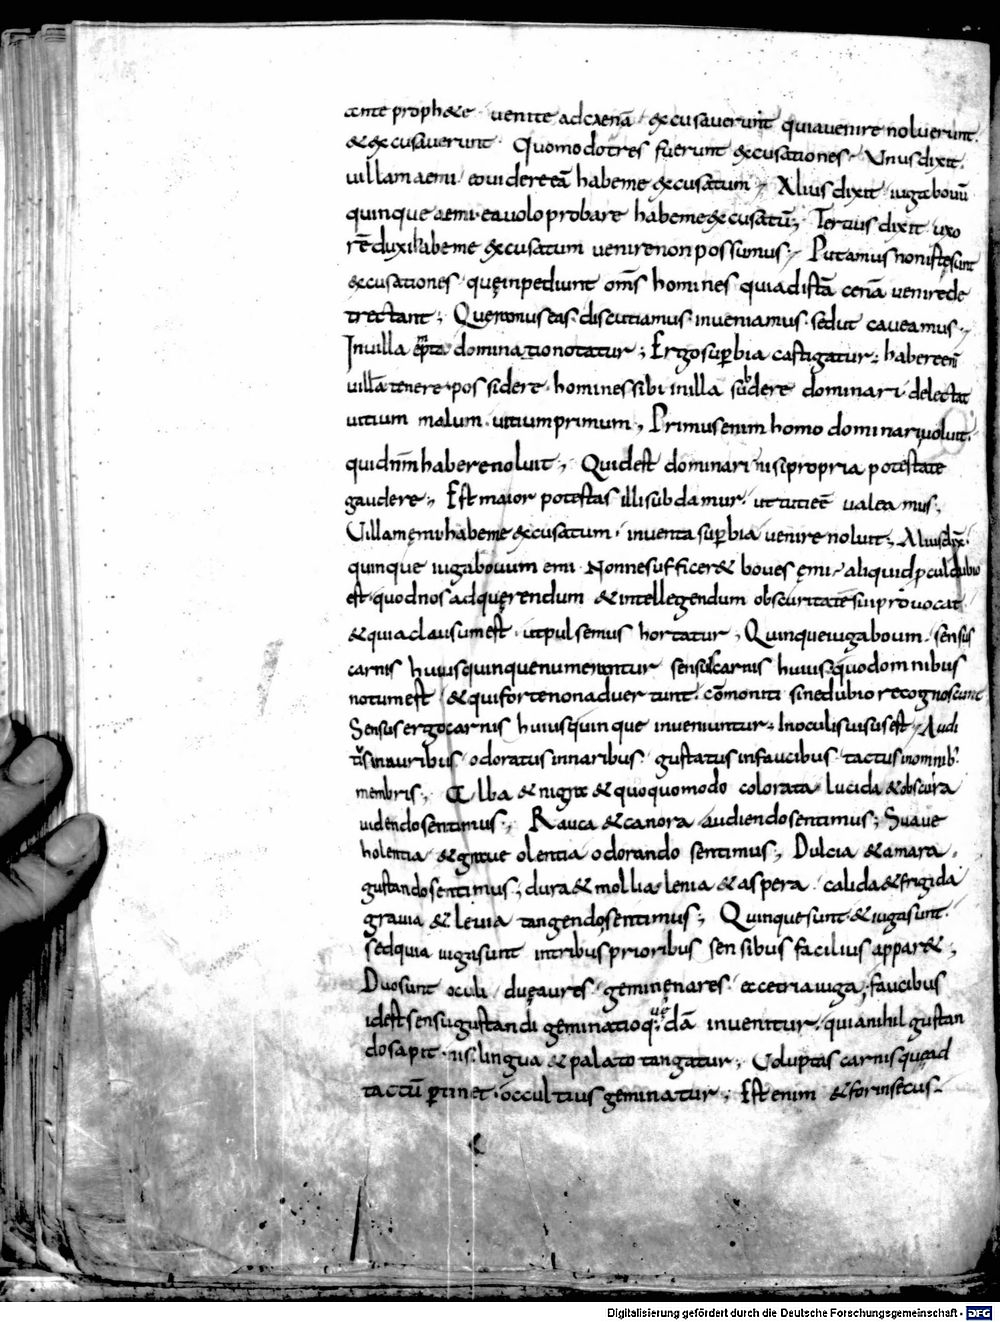 ante prophetę · venite ad caenā · excusaverunt quia venire noluerunt ·
& excusaverunt · Quomodo tres fuerunt excusationes · Unus dixit ·
uillam aemi · eo uidere eā habe me excusatum ; Alius dixit iuga bouū
quinque aemi · ea uolo probare habe me excusatū ; Tertius dixit uxo
rē duxi habe me excusatum venire non possumus ; Putamus non istę sunt
excusationes · quę inpediunt oms̄ homines qui ad istā cenā venire de
trectant ; Queramus eas · discutiamus · inveniamus · sed ut caveamus ;
In uilla empta dominatio notatur ; Ergo suꝑbia castigatur ; habere enī
uillā tenere · possidere · homines sibi in illa subdere dominari delectat
uitium malum · uitium primum ; Primus enim homo dominari uoluit ·
qui dn̄m habere noluit ; Quid est dominari nisi propria potestate
gaudere ; Est maior potestas illi subdamur · ut tuti eē ualeamus ;
Uillam ęmi habe me excusatum · inventa suꝑbia venire noluit ; Alius dix̄ ·
quinque iuga bouum emi · Nonne sufficeret boues ęmi · aliquid ꝓcul dubio
est · quod nos ad quęrendum & intellegendum obscuritate sui provocat ·
& quia clausum est · ut pulsemus hortatur ; Quinque iuga boum · sensus
carnis huius quinque numerantur sensus carnis huius · quod omnibus
notum est · & qui forte non aduertunt · cōmoniti sine dubio recognoscunt
Sensus ergo carnis huius quinque inveniuntur ; In oculis uisus est · Audi
tus in auribus · odoratus in naribus · gustatus in faucibus · tactus in omnib;
membris ; Alba & nigra & quoquo modo colorata · lucida & obscura
uidendo sentimus ; Rauca & canora audiendo sentimus ; Suaue
holentia & graue olentia odorando sentimus ; Dulcia & amara ·
gustando sentimus ; dura & mollia · lenia & aspera · calida & frigida
grauia & leuia tangendo sentimus ; Quinque sunt & iuga sunt ·
sed quia iuga sunt in tribus prioribus sensibus facilius apparet ;
Duo sunt oculi · duę aures · geminę nares · ecce tria iuga ; faucibus
id est sensu gustandi geminatio quędā invenitur · quia nihil gustan
do sapit · nisi lingua & palato tangatur ; Uoluptas carnis quę ad
tactū ꝑtinet · occultius geminatur ; Est enim & forinsecus ·
Digitalisierung gefördert durch die Deutsche Forschungsgemeinschaft - DFG